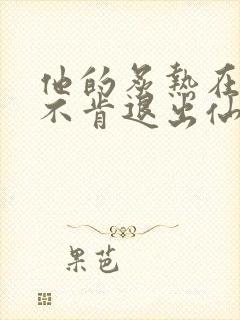 他的炙热在
不肯退出仙
果芭